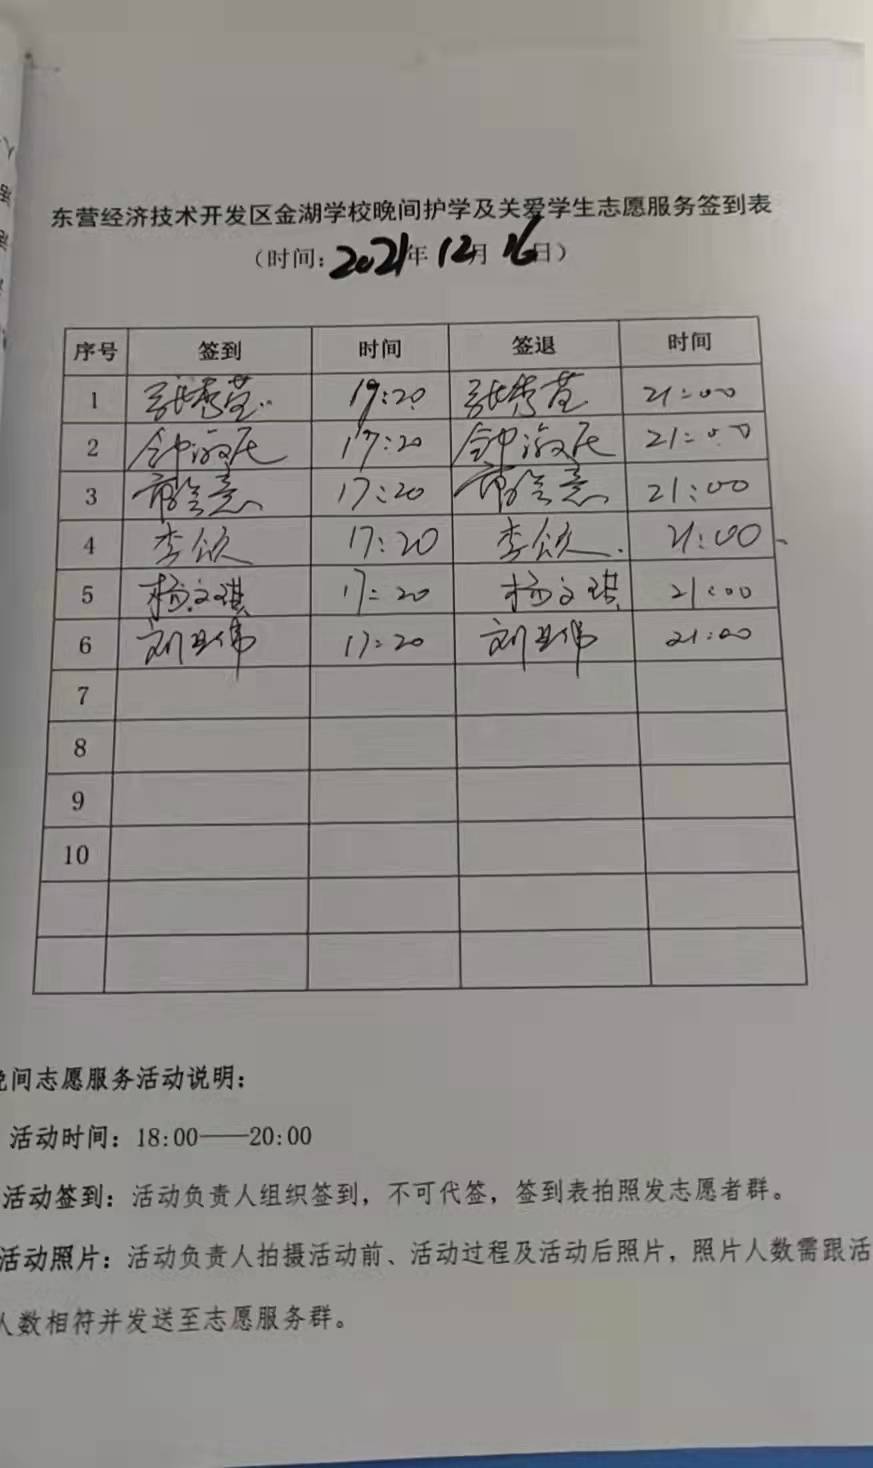 东营经济技术开发区金湖学校晚间护学及关爱学生志愿服务签到表
（时间：2021年12月16日）
序号 签到 时间 签退 时间
1 张秀莹 19:20 张秀莹 21:00
2 钟 17:20 钟 21:00
3 17:20 21:00
4 李欣 17:20 李欣 21:00
5 杨文琪 17:20 杨文琪 21:00
6 刘卫伟 17:20 刘卫伟 21:00
7
8
9
10
间志愿服务活动说明：
活动时间：18:00——20:00
活动签到：活动负责人组织签到，不可代签，签到表拍照发志愿者群。
活动照片：活动负责人拍摄活动前、活动过程及活动后照片，照片人数需跟活
人数相符并发送至志愿服务群。